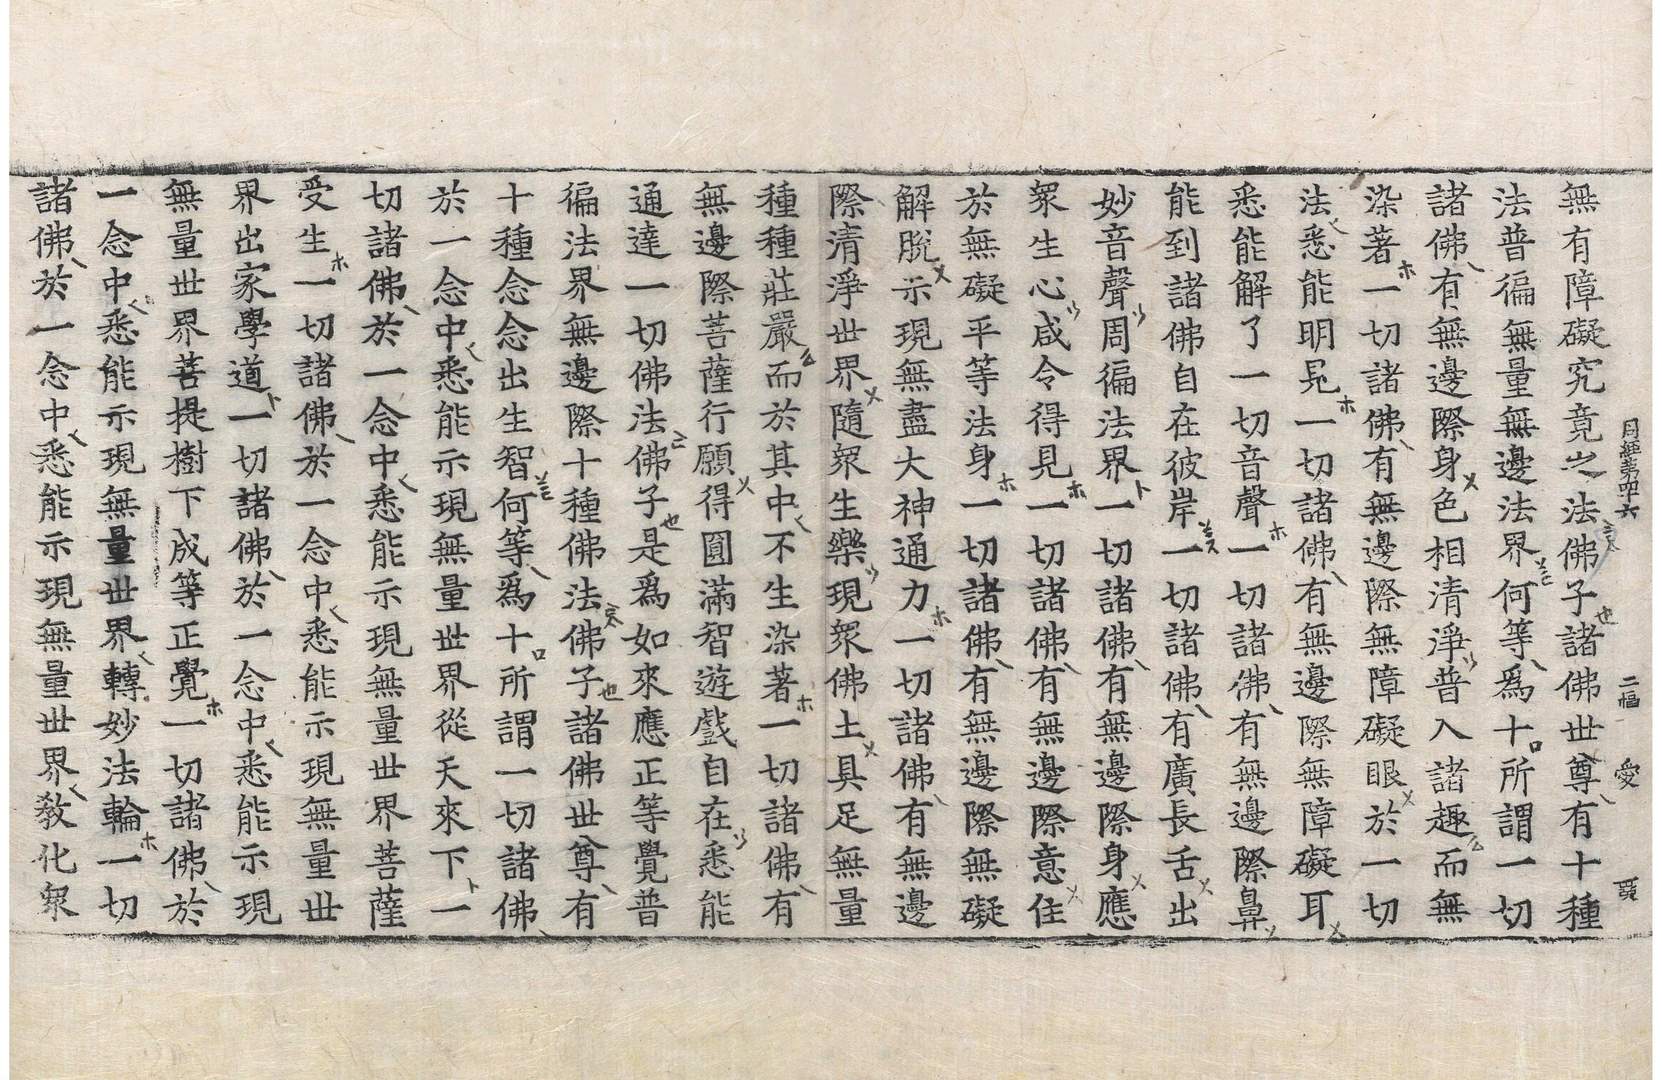 周經第四十六 二幅 愛
無有障礙究竟之法佛子諸佛世尊有十種
法普徧無量無邊法界何等爲十所謂一切
諸佛有無邊際身色相清淨普入諸趣而無
染著一切諸佛有無邊際無障礙眼於一切
法悉能明見一切諸佛有無邊際無障礙耳
悉能解了一切音聲一切諸佛有無邊際鼻
能到諸佛自在彼岸一切諸佛有廣長舌出
妙音聲周徧法界一切諸佛有無邊際身應
衆生心咸令得見一切諸佛有無邊際意住
於無礙平等法身一切諸佛有無邊際無礙
解脫示現無盡大神通力一切諸佛有無邊
際清淨世界隨衆生樂現衆佛土具足無量
種種莊嚴而於其中不生染著一切諸佛有
無邊際菩薩行願得圓滿智遊戲自在悉能
通達一切佛法佛子是爲如來應正等覺普
徧法界無邊際十種佛法佛子諸佛世尊有
十種念念出生智何等爲十所謂一切諸佛
於一念中悉能示現無量世界從天來下一
切諸佛於一念中悉能示現無量世界菩薩
受生一切諸佛於一念中悉能示現無量世
界出家學道一切諸佛於一念中悉能示現
無量世界菩提樹下成等正覺一切諸佛於
一念中悉能示現無量世界轉妙法輪一切
諸佛於一念中悉能示現無量世界教化衆